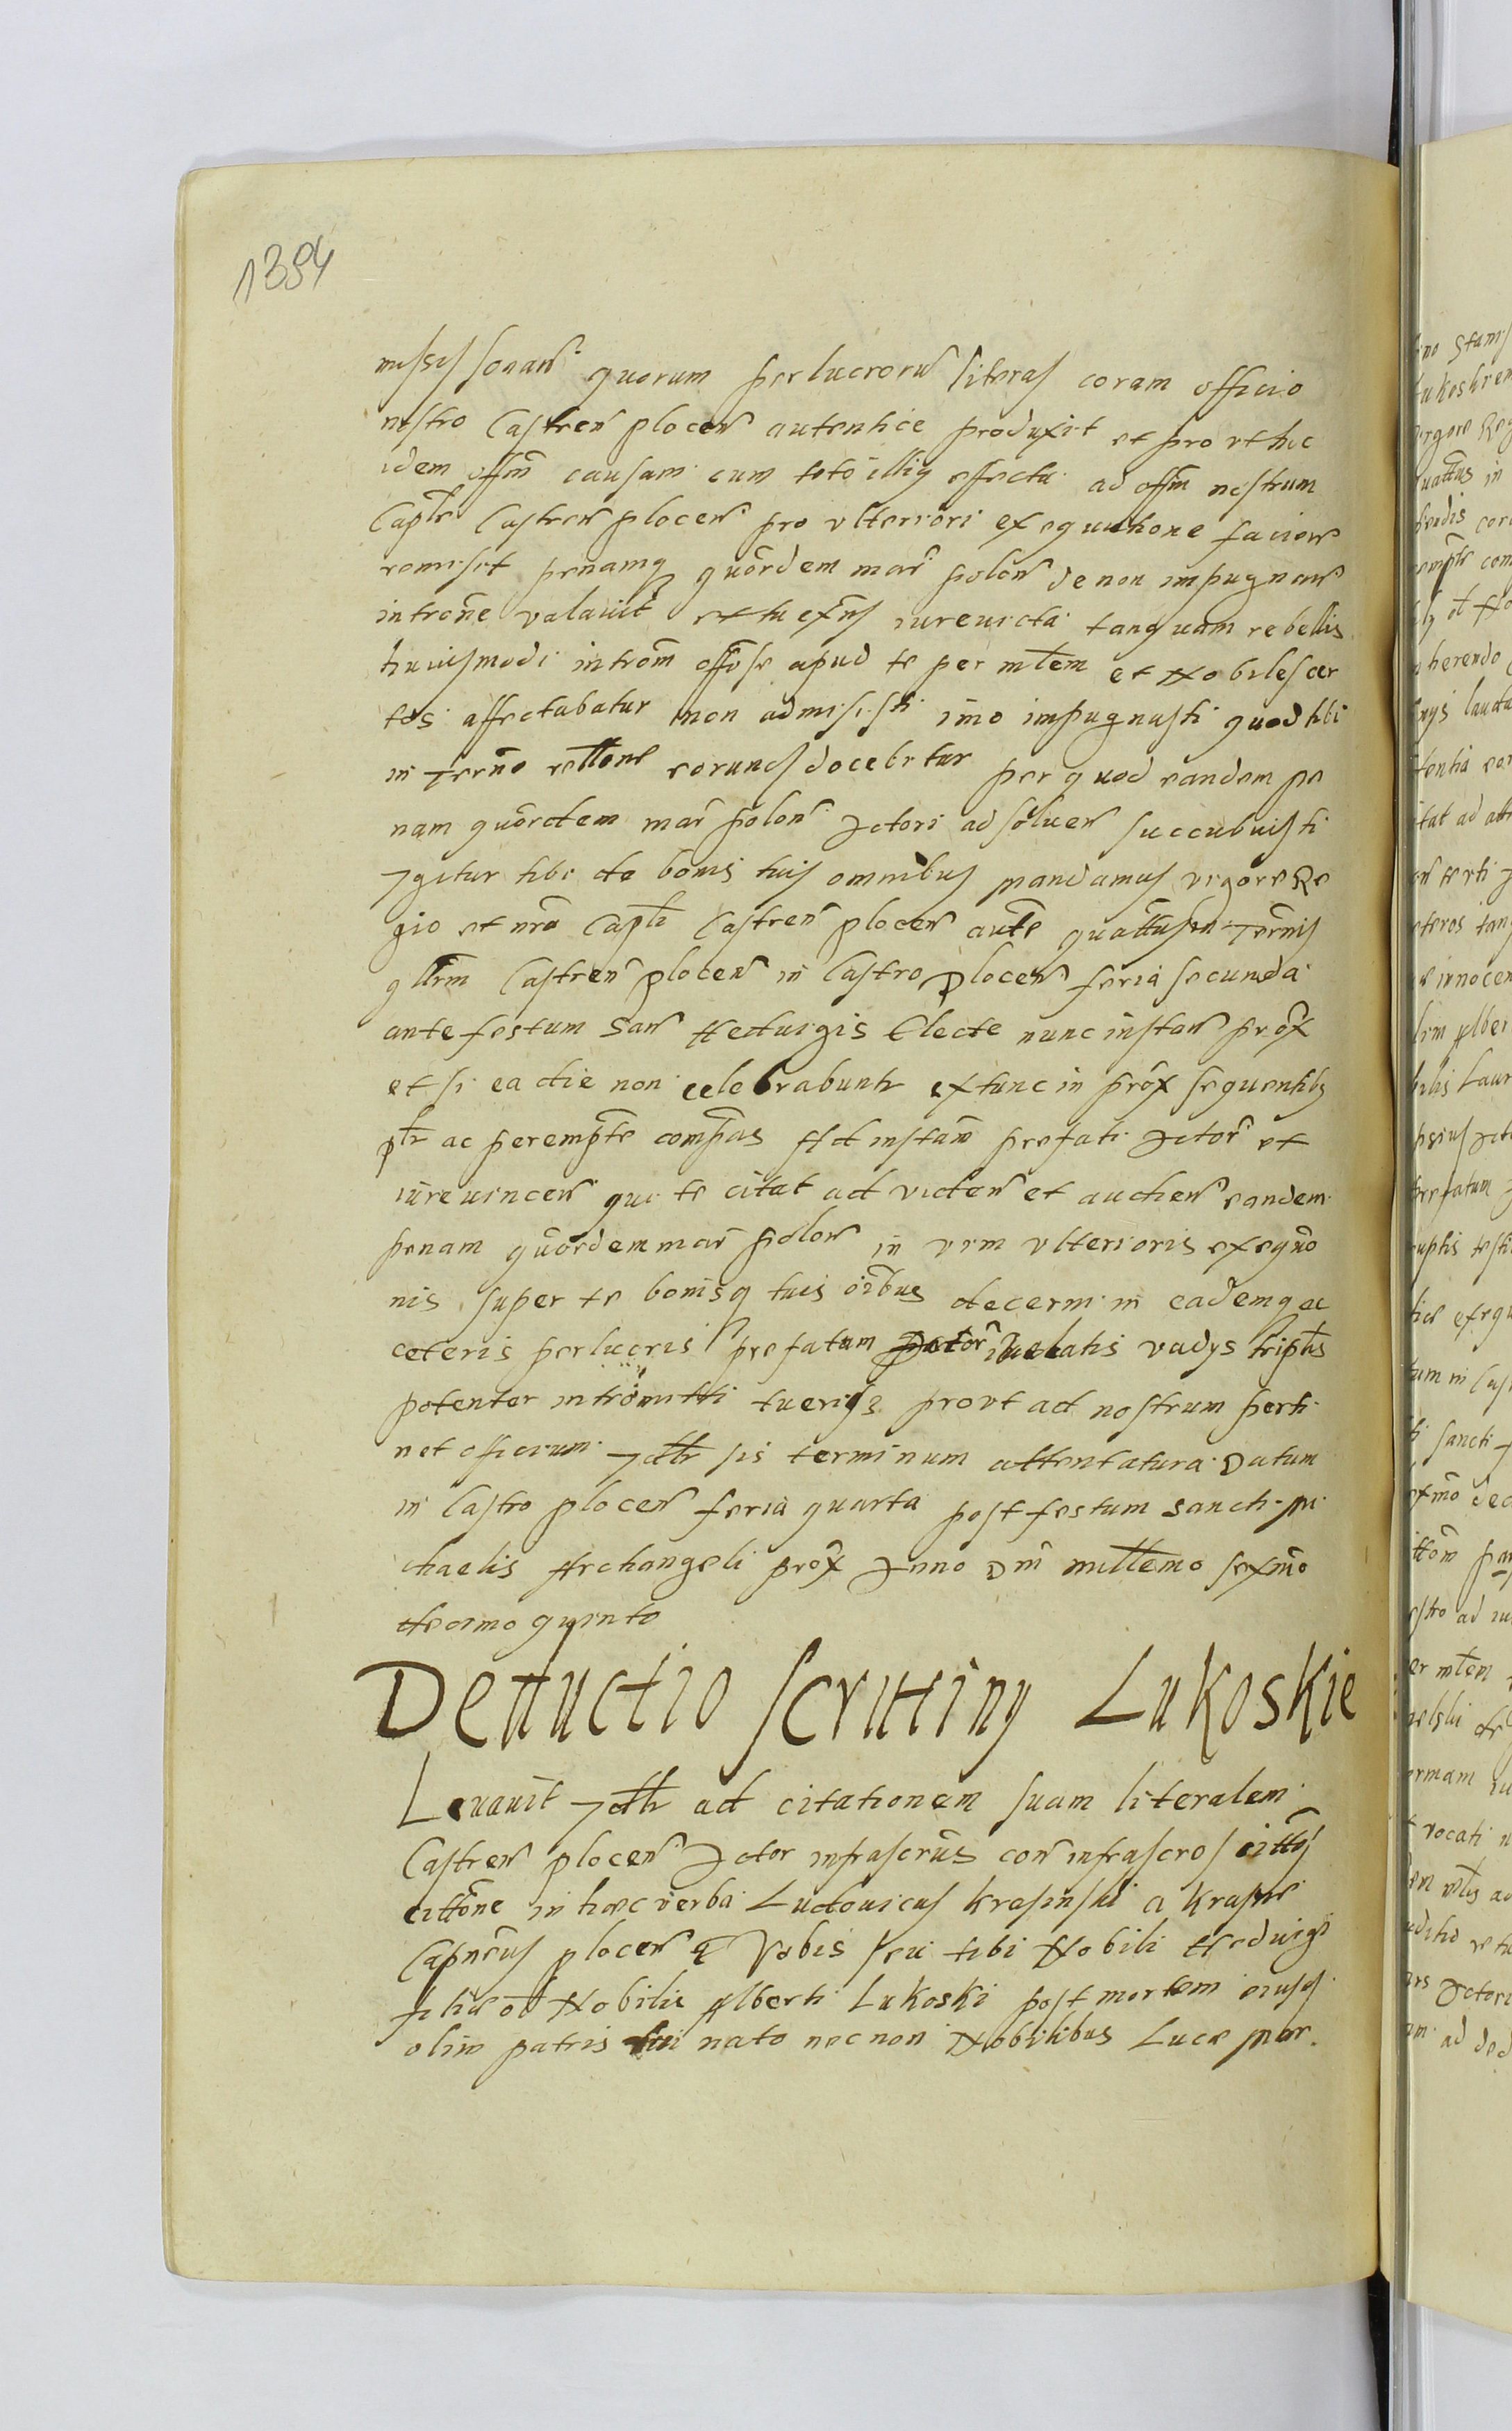 1394
missis sonan quorum perlucroru literas coram officio
nostro Castren plocen autentice produxit et pro vt hic
idem offm causam cum toto illiq effectu ad offm nostrum
Caple Castren plocen pro vlteriori exequutione facien
remisit penamq quordem mar polon de non impugnan
introne valauit et tu exns iureuicta tanquam rebellis
huiusmodi introm offose apud te per mtem et Nobiles cer
tos affectabatur non admisisti imo impugnasti quod tibi
in Termo rettone eorund docebitur per quod eandem pe
nam quordem mar polon Actori ad soluen succubuisti
Igitur tibi de bonis tuis omnibus mandamus vigore Re
gio et nro Capli Castren plocen aute quattus in Termis
qllrm Castren plocen in Castro Plocen feria secunda
ante festum San Heduigis Electe nunc instan prox
et si ea die non celebrabuntr extunc in prox sequentibq
pltr ac perempte compas Ad instam prefati Actor et
iure uincen qui te citat ad viden et audien eandem
penam quordem mar polon in vim vlterioris exequo
nis super te bonisq tuis oibus decerni in eademq ac
ceteris perlucris prefatum Actor vadys triplis
potenter intromitti tuerige provt ad nostrum perti
net officium Idtr sis terminum attentatura Datum
in Castro plocen feria quarta post festum Sancti Mi
chaelis Archangeli prox Anno Dni millemo sexmo
decimo quinto
Deductio scrutiny Lukoskie
Leuauit Idtr ad citationem suam literalem
Castren plocen Actor infrascrus con infrascros citto
cittone in hoec verba Ludouicus Krasinski a Krasne
Capneus plocen &c Vobis seu tibi Nobili Heduigi
filiae od Nobilis Alberti Lukoski post mortem eiusd
olim patris tui nato nec non Nobilibus Lucae Mar